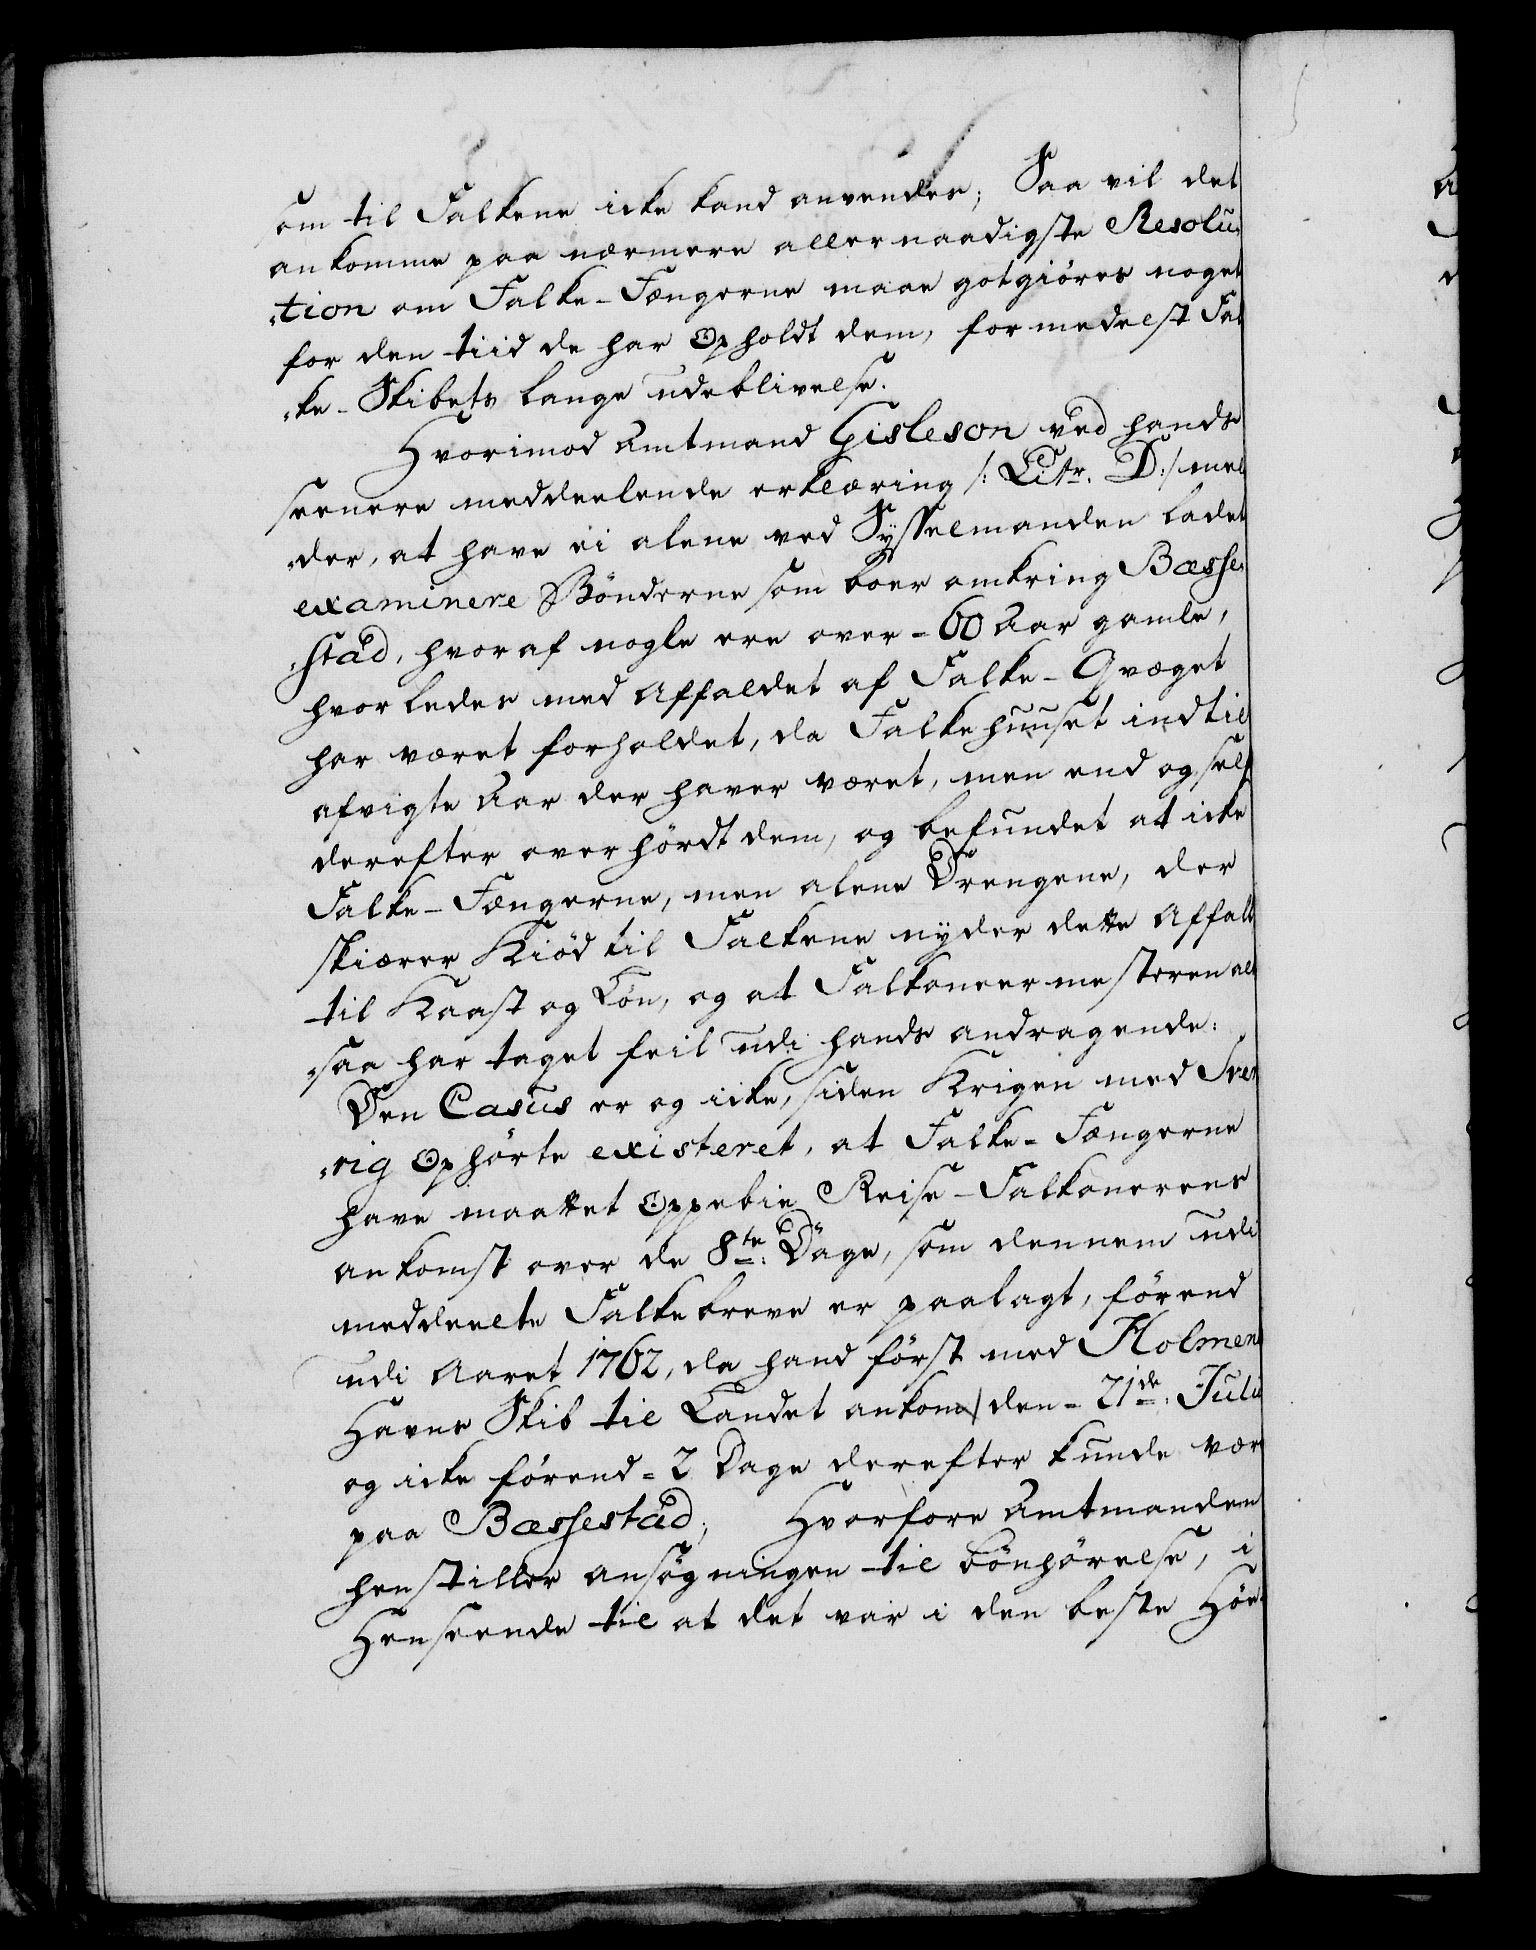 som til Falkene icke kand anvendes; Saa vil det
ankomme paa nærmere allernaadigste Resolu-
-tion om Falke-Fængerne maae gotgiöres noget
for den tiid de har Opholdt dem, formedelst Fal
-ke-Skibets lange udeblivelse.
Hvorimod Amtmand Gisleson ved hands
seenere meddeelende erklæring /: Litr. D:/ mel
-der, at have ei alene ved Sysselmanden ladet
examinere Bönderne som boer omkring Bæsse-
-stad, hvoraf nogle ere over - 60 Aar gamle,
hvorledes med Affaldet af Falke-Qvæget
har været forholdet, da Falkehuuset indtil
afvigte Aar der haver været, men end og self
derefter overhördt dem, og befundet at icke
Falke-Fængerne, men alene Drengene, der
skiærer Kiöd til Falkene nyder dette Affald
til Kaast og Lön, og at Falkoneermesteren al
-saa har taget feil udi hands andragende:
Den Casus er og icke, siden Krigen med Sve
-rig Ophörte existeret, at Falke-Fængerne
have maattet Oppebie Reise-Falkonerens
ankomst over de 8te: Dage, som dennem udi
meddeelte Falkebreve er paalagt, förend
udi Aaret 1762, da hand först med Holmens
Havns Skib til Landet ankom den - 21de: Julii
og icke förend - 2 Dage derefter kunde vær
paa Bæssestad; Hvorfore Amtmanden
henstiller ansögningen til bönhörelse, i
Henseende til at det var i den beste Höe-